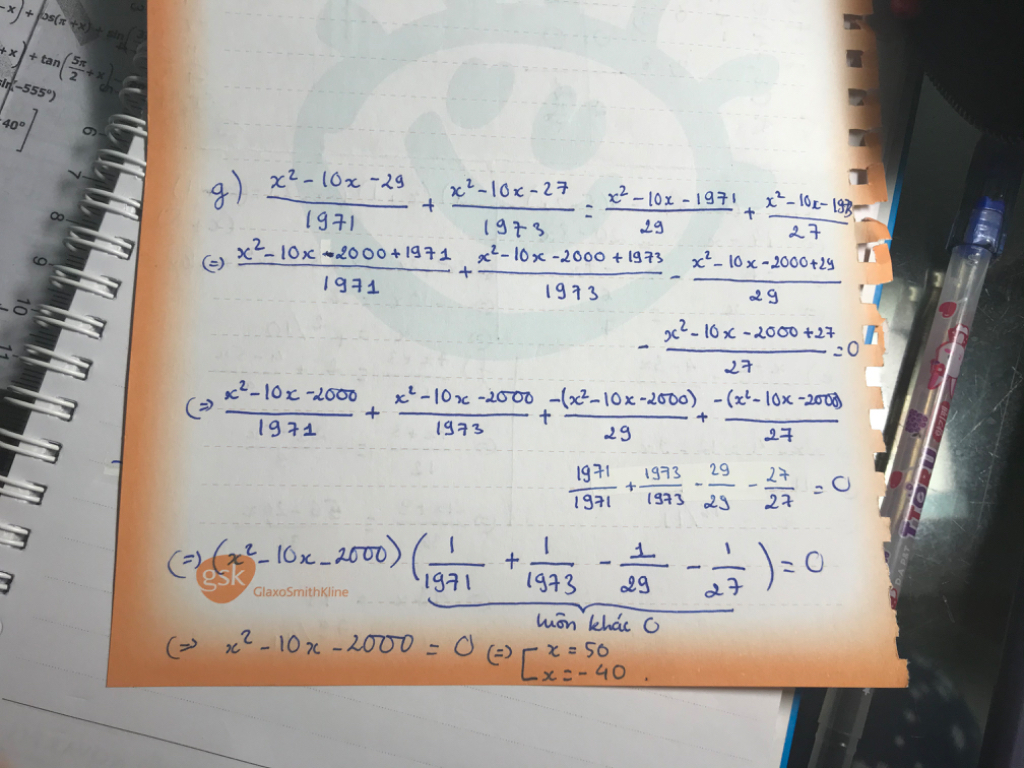 -x) + cos(π+x) + sin(
+x) + tan(5π/2 + x)
sin(-555°)
40°]
6
7
8
9
10
11
g) (x² - 10x - 29)/1971 + (x² - 10x - 27)/1973 = (x² - 10x - 1971)/29 + (x² - 10x - 1973)/27
(=) (x² - 10x - 2000 + 1971)/1971 + (x² - 10x - 2000 + 1973)/1973 - (x² - 10x - 2000 + 29)/29
- (x² - 10x - 2000 + 27)/27 = 0
(=) (x² - 10x - 2000)/1971 + (x² - 10x - 2000)/1973 + -(x² - 10x - 2000)/29 + -(x² - 10x - 2000)/27
1971/1971 + 1973/1973 - 29/29 - 27/27 = 0
(=) (x² - 10x - 2000)(1/1971 + 1/1973 - 1/29 - 1/27) = 0
luôn khác 0
gsk GlaxoSmithKline
(=) x² - 10x - 2000 = 0 (=) [ x = 50
x = -40 .